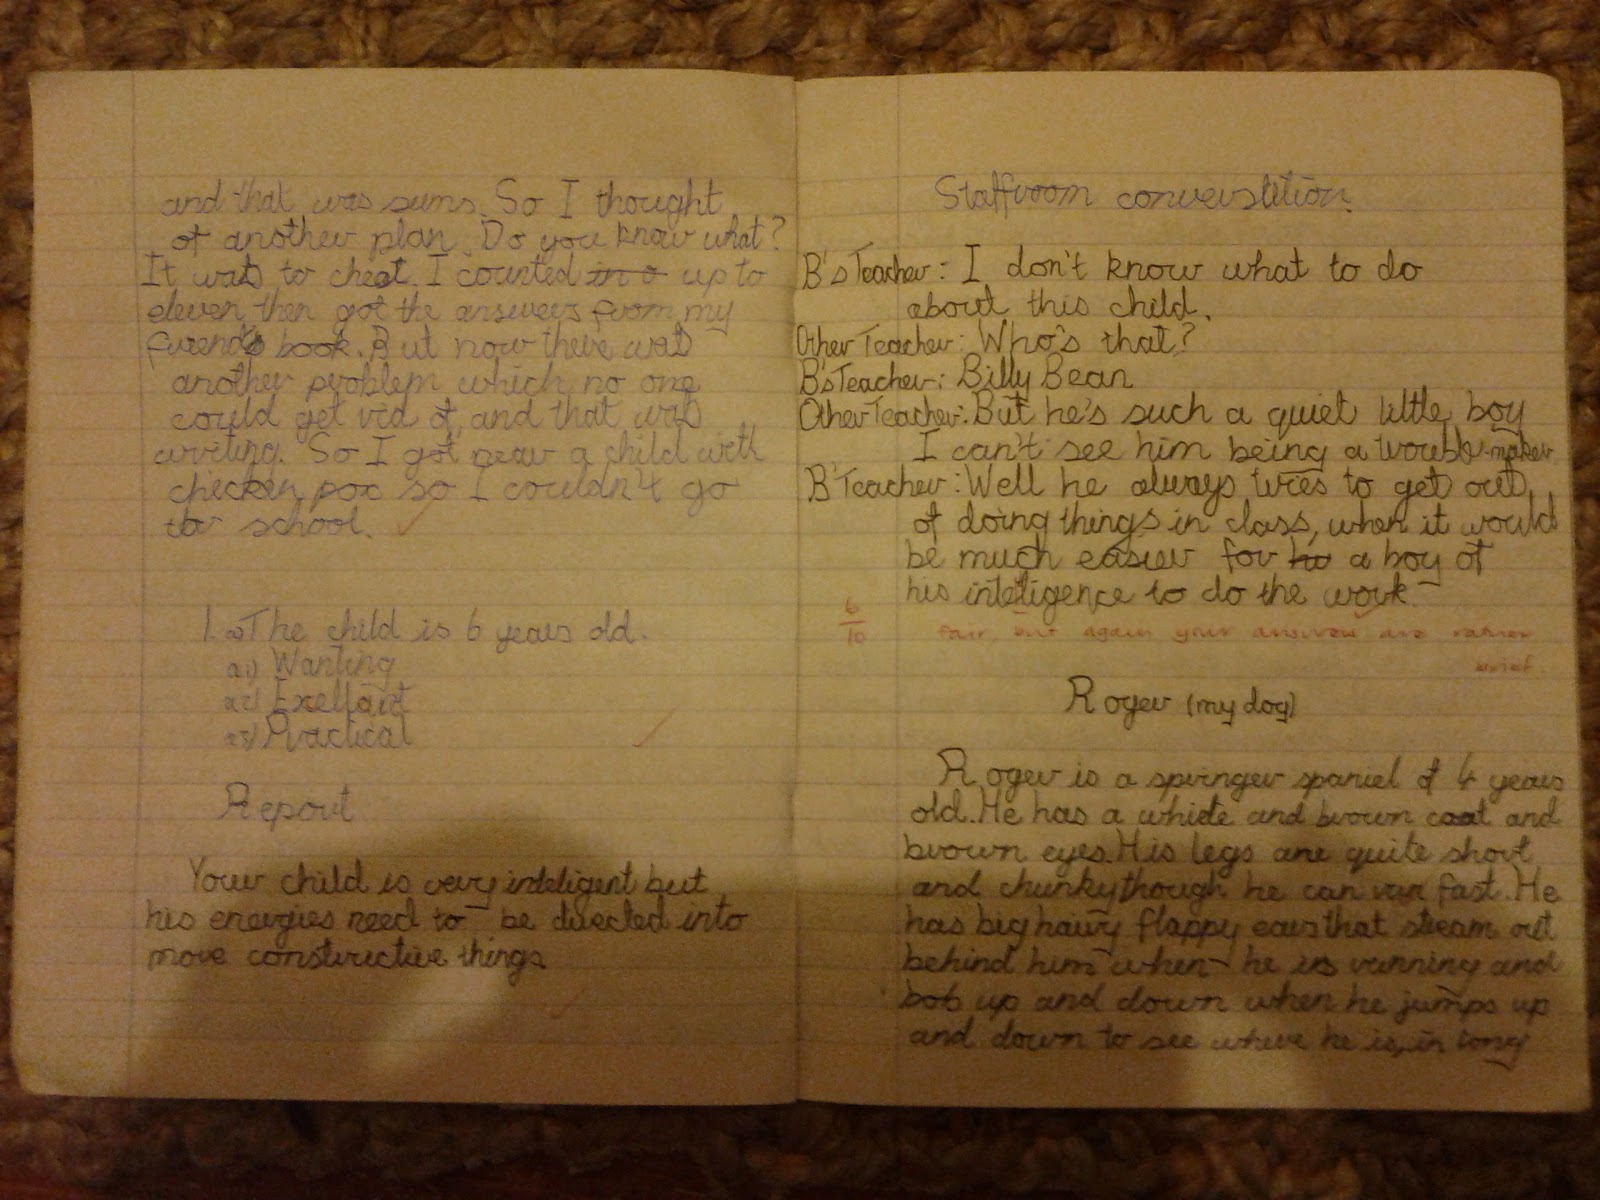 and that was sums. So I thought
of another plan. Do you know what?
It was to cheat. I counted in o up to
eleven then got the answers from my
furend's book. But now there was
another problem which no one
could get rid of, and that was
writing. So I got near a child with
chicken pox so I couldn't go
to school.
1. a) The child is 6 years old.
a1) Wanting
a2) Exellant
a3) Practical
Report
Your child is very inteligent but
his energies need to be directed into
more constructive things.
Staffroom converstition.
B's Teacher: I don't know what to do
about this child.
Other Teacher: Who's that?
B's Teacher: Billy Bean
Other Teacher: But he's such a quiet little boy
I can't see him being a trouble-maker
B' Teacher: Well he always tries to get out
of doing things in class, when it would
be much easier for ho a boy of
his inteligence to do the work.
6/10 fair, but again your answers are rather
brief.
Roger (my dog)
Roger is a springer spaniel of 4 years
old. He has a white and brown coat and
brown eyes. His legs are quite short
and chunky though he can run fast. He
has big hairy flappy ears that stream out
behind him when he is running and
bob up and down when he jumps up
and down to see where he is, in long